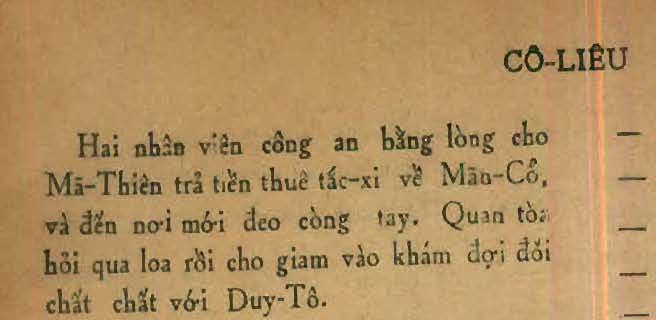 CÔ-LIÊU
Hai nhân viên công an bằng lòng cho
Mã-Thiên trả tiền thuê tắc-xi về Mãn-Cổ,
và đến nơi mới đeo còng tay. Quan tòa
hỏi qua loa rồi cho giam vào khám đợi đối
chất chất với Duy-Tô.